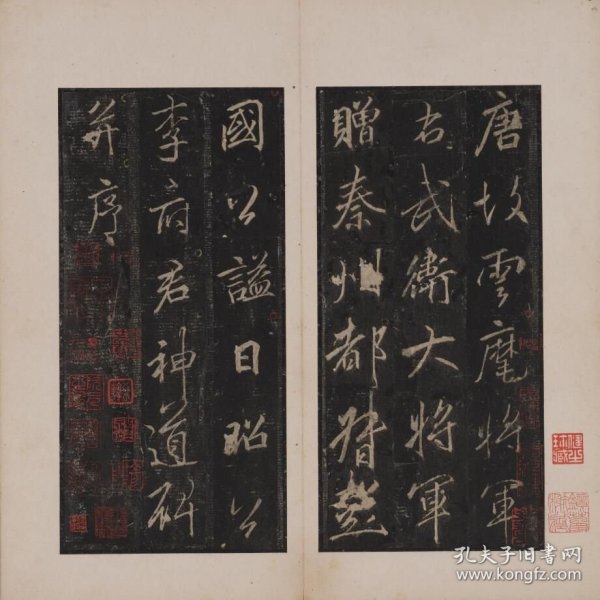 唐故雲麾將軍
右武衛大將軍
贈秦州都督彭
國公謚曰昭公
李府君神道碑
并序
孔夫子旧书网
www.kongfz.com